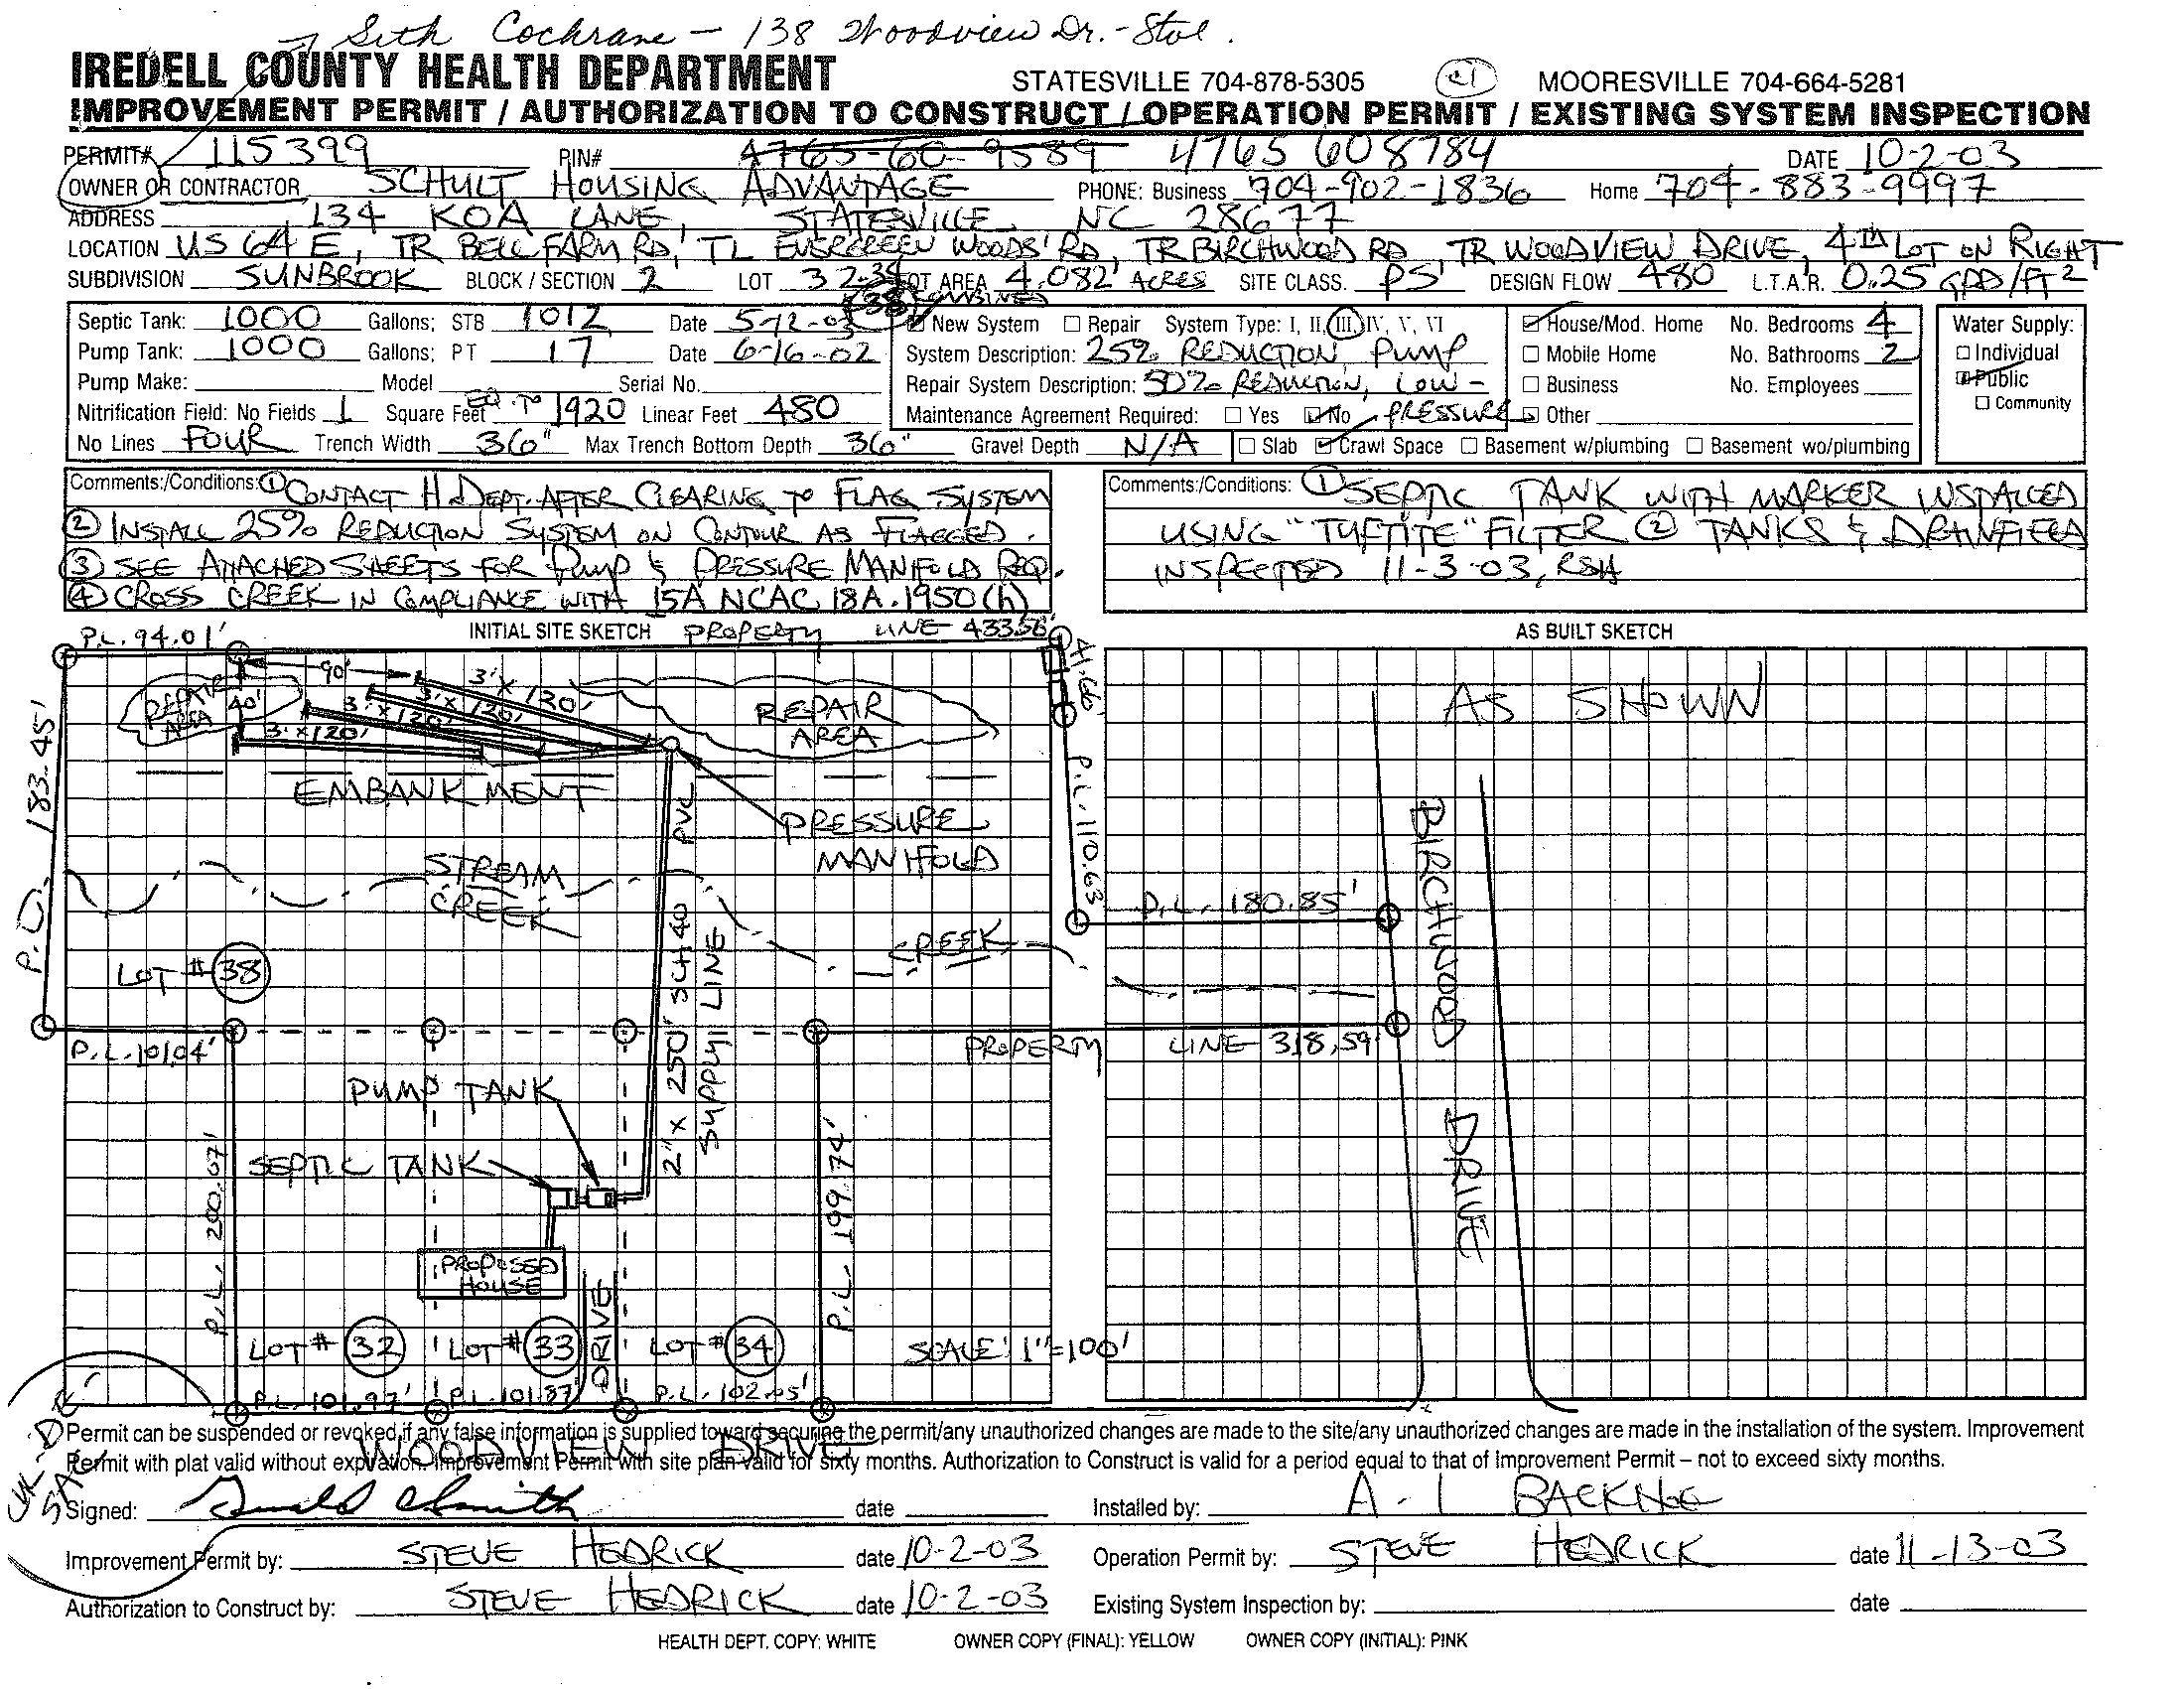 Seth Cochrane - 138 Woodview Dr. -
IREDELL COUNTY HEALTH DEPARTMENT STATESVILLE 704-878-5305 21 MOORESVILLE 704-664-5281
IMPROVEMENT PERMIT / AUTHORIZATION TO CONSTRUCT / OPERATION PERMIT / EXISTING SYSTEM INSPECTION
PERMIT# 115399 PIN# 4765-60-9589 4765 608784 DATE 10-2-03
OWNER OR CONTRACTOR SCHULT HOUSING ADVANTAGE PHONE: Business 704-902-1836 Home 704-883-9997
ADDRESS 134 KOA LANE, STATESVILLE, NC 28677
LOCATION US 64 E, TR BELL FARM RD, TL EVERGREEN WOODS RD, TR BIRCHWOOD RD, TR WOODVIEW DRIVE, 4TH LOT ON RIGHT
SUBDIVISION SUNBROOK BLOCK / SECTION 2 LOT 32-34 LOT AREA 4.082 ACRES SITE CLASS. PS DESIGN FLOW 480 L.T.A.R. 0.25 GPD/FT2
(38) COMBINED
Septic Tank: 1000 Gallons; STB 1012 Date 5-12-03 New System Repair System Type: I, II, III, IV, V, VI House/Mod. Home No. Bedrooms 4 Water Supply:
Pump Tank: 1000 Gallons; PT 17 Date 6-16-02 System Description: 25% REDUCTION, PUMP Mobile Home No. Bathrooms 2 Individual
Pump Make: Model Serial No. Repair System Description: 50% REDUCTION, LOW- Business No. Employees Public
Nitrification Field: No Fields 1 Square Feet EQ. TO 1920 Linear Feet 480 Maintenance Agreement Required: Yes No PRESSURE Other Community
No Lines FOUR Trench Width 36" Max Trench Bottom Depth 36" Gravel Depth N/A Slab Crawl Space Basement w/plumbing Basement wo/plumbing
Comments:/Conditions: ① CONTACT H. DEPT. AFTER CLEARING TO FLAG SYSTEM
② INSTALL 25% REDUCTION SYSTEM ON CONTOUR AS FLAGGED.
③ SEE ATTACHED SHEETS FOR PUMP & PRESSURE MANIFOLD REQ.
④ CROSS CREEK IN COMPLIANCE WITH 15A NCAC 18A.1950(h)
Comments:/Conditions: ① SEPTIC TANK WITH MARKER INSTALLED
USING "TUFTITE" FILTER ② TANKS & DRAINFIELD
INSPECTED 11-3-03, RSH
P.L. 94.01' INITIAL SITE SKETCH PROPERTY LINE 433.56' AS BUILT SKETCH
41.66'
90'
3' X 120'
REPAIR AREA
40'
3' X 120'
3' X 120'
3' X 120'
REPAIR AREA
AS SHOWN
P.L. 183.45'
EMBANKMENT
PRESSURE MANIFOLD
P.L. 110.63
BIRCHWOOD DRIVE
STREAM
CREEK
P.L. 180.85'
CREEK
LOT # 38
2" X 250' SCH 40 PVC
SUPPLY LINE
P.L. 101.04'
PROPERTY LINE 318.59'
PUMP TANK
SEPTIC TANK
P.L. 200.67'
P.L. 199.74'
PROPOSED HOUSE
DRIVE
LOT # 32 LOT # 33 LOT # 34 SCALE: 1"=100'
P.L. 101.97' P.L. 101.87' P.L. 102.05'
CUL-DE-SAC
WOODVIEW DRIVE
Permit can be suspended or revoked if any false information is supplied toward securing the permit/any unauthorized changes are made to the site/any unauthorized changes are made in the installation of the system. Improvement
Permit with plat valid without expiration. Improvement Permit with site plan valid for sixty months. Authorization to Construct is valid for a period equal to that of Improvement Permit – not to exceed sixty months.
Signed: date Installed by: A-1 BACKHOE
Improvement Permit by: STEVE HEDRICK date 10-2-03 Operation Permit by: STEVE HEDRICK date 11-13-03
Authorization to Construct by: STEVE HEDRICK date 10-2-03 Existing System Inspection by: date
HEALTH DEPT. COPY: WHITE OWNER COPY (FINAL): YELLOW OWNER COPY (INITIAL): PINK